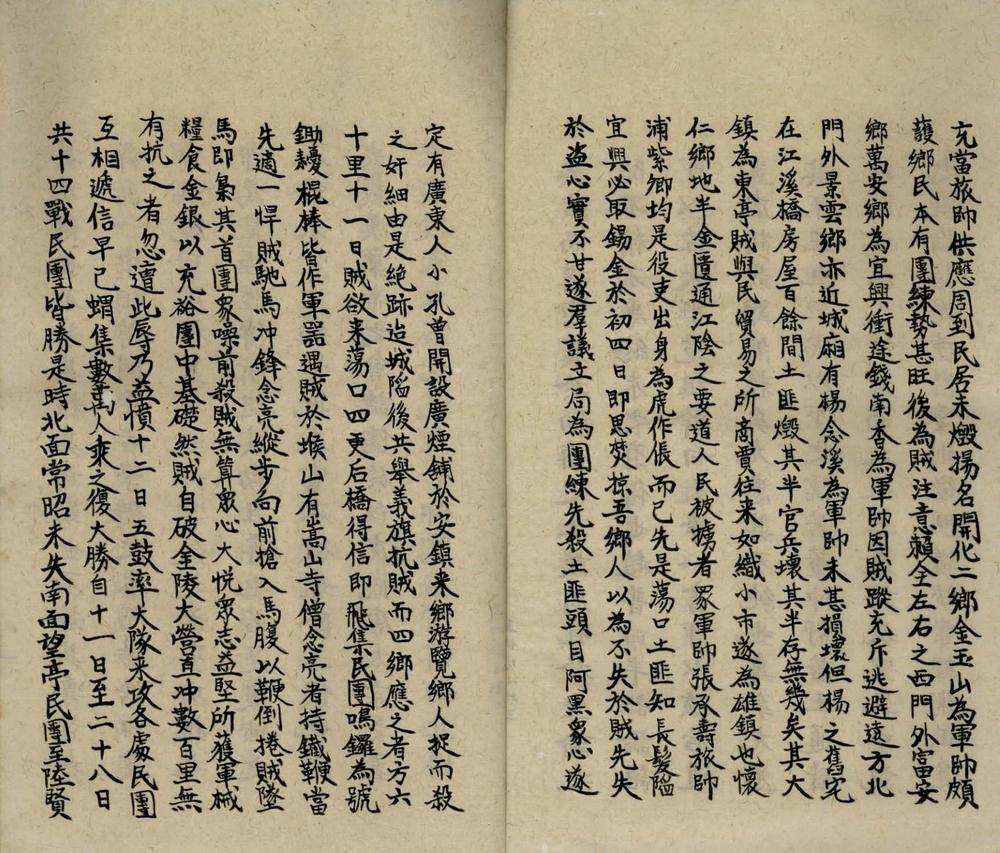 充當旅帥供應周到民居未燬揚名開化二鄉金玉山為軍帥頗
護鄉民本有團練勢甚旺後為賊注意賴全左右之西門外富安
鄉萬安鄉為宜興衝途錢南香為軍帥因賊蹤充斥逃避遠方北
門外景雲鄉亦近城廂有楊念溪為軍帥未甚損壞但楊之舊宅
在江溪橋房屋百餘間土匪燬其半官兵壞其半存無幾矣其大
鎮為東亭賊與民貿易之所商賈往來如織小市遂為雄鎮也懷
仁鄉地半金匱通江陰之要道人民被擄者眾軍帥張承壽旅帥
浦紫卿均是役吏出身為虎作倀而已先是蕩口土匪知長髮陷
宜興必取錫金於初四日即思焚掠吾鄉人以為不失於賊先失
於盜心實不甘遂羣議立局為團練先殺土匪頭目阿黑象心遂
定有廣東人小孔曾開設廣煙舖於安鎮来鄉游覽鄉人捉而殺
之奸細由是絶跡迨城陷後共舉義旗抗賊而四鄉應之者方六
十里十一日賊欲来蕩口四更后橋得信即飛集民團鳴鑼為號
鋤耰棍棒皆作軍器遇賊於堠山有嵩山寺僧念亮者持鐵鞭當
先適一悍賊馳馬冲鋒念亮縱步向前搶入馬腹以鞭倒捲賊墜
馬即梟其首團眾噪前殺賊無算眾心大悅眾志益堅所獲軍械
糧食金銀以充裕團中基礎然賊自破金陵大營直冲數百里無
有抗之者忽遭此辱乃益憤十二日五鼓率大隊来攻各處民團
互相遞信早已蝟集數萬人乘之復大勝自十一日至二十八日
共十四戰民團皆勝是時北面常昭未失南面望亭民團至陸賢